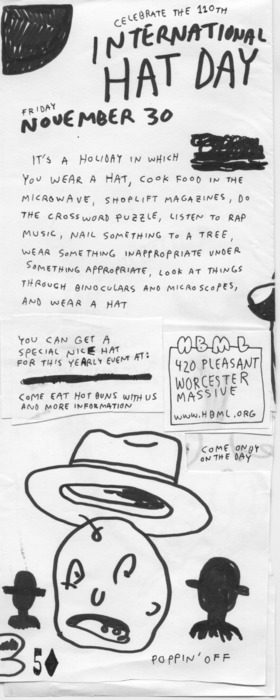 CELEBRATE THE 110TH
INTERNATIONAL
HAT DAY
FRIDAY
NOVEMBER 30
IT'S A HOLIDAY IN WHICH
YOU WEAR A HAT, COOK FOOD IN THE
MICROWAVE, SHOPLIFT MAGAZINES, DO
THE CROSSWORD PUZZLE, LISTEN TO RAP
MUSIC, NAIL SOMETHING TO A TREE,
WEAR SOMETHING INAPPROPRIATE UNDER
SOMETHING APPROPRIATE, LOOK AT THINGS
THROUGH BINOCULARS AND MICROSCOPES,
AND WEAR A HAT
YOU CAN GET A
SPECIAL NICE HAT
FOR THIS YEARLY EVENT AT:
COME EAT HOT BUNS WITH US
AND MORE INFORMATION
HBML
420 PLEASANT
WORCESTER
MASSIVE
WWW.HBML.ORG
COME ON BY
ON THE DAY
3 5
POPPIN' OFF